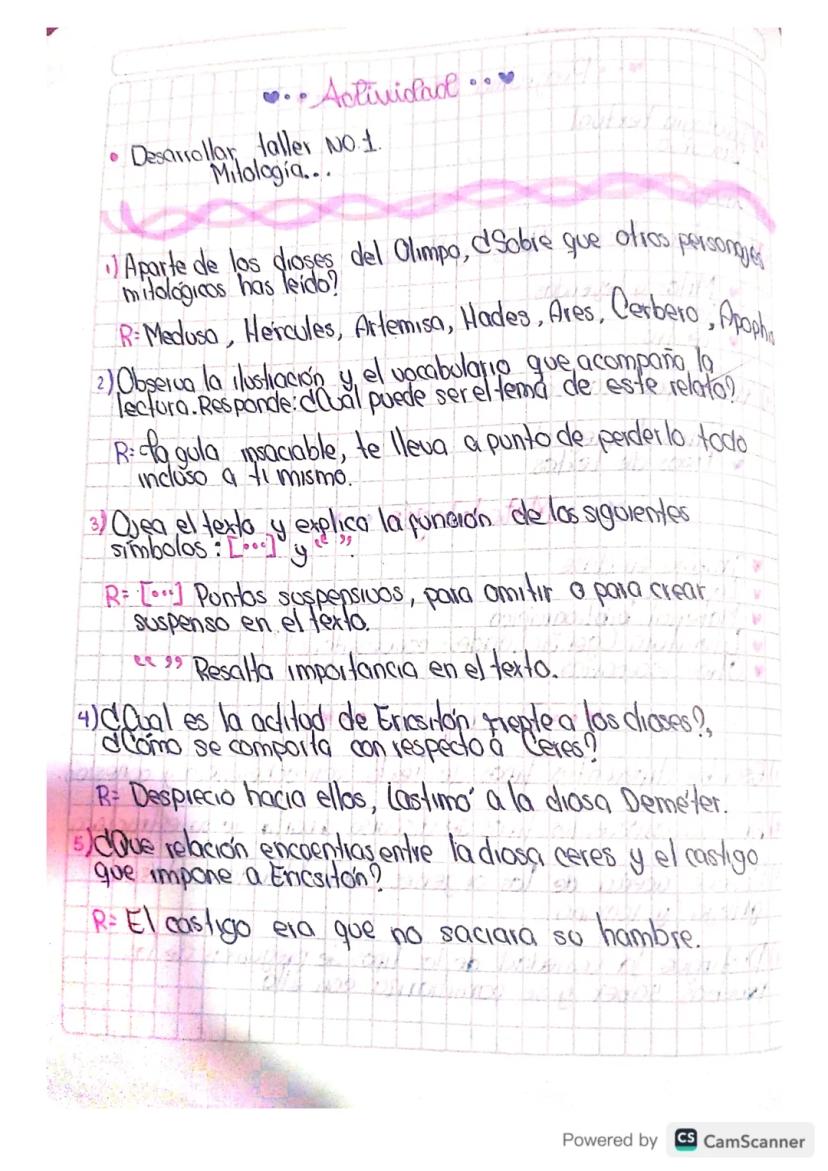 Actividad
• Desarrollar taller NO.1.
Mitología...
1) Aparte de los dioses del Olimpo, ¿Sobre que otros personajes
mitológicos has leído?
R= Medusa, Hércules, Artemisa, Hades, Ares, Cerbero, Apophis
2) Observa la ilustración y el vocabulario que acompaña la
lectura. Responde: ¿Cuál puede ser el tema de este relato?
R= La gula insaciable, te lleva a punto de perderlo todo
incluso a ti mismo.
3) Ojea el texto y explica la función de los siguientes
símbolos: [...] y “ ”.
R= [...] Puntos suspensivos, para omitir o para crear
suspenso en el texto.
“ ” Resalta importancia en el texto.
4) ¿Cual es la actitud de Ericsitón frente a los dioses?,
¿Cómo se comporta con respecto a Ceres?
R= Desprecio hacia ellos, Lastimó a la diosa Deméter.
5) ¿Que relación encuentras entre la diosa ceres y el castigo
que impone a Ericsitón?
R= El castigo era que no saciara su hambre.
Powered by CS CamScanner